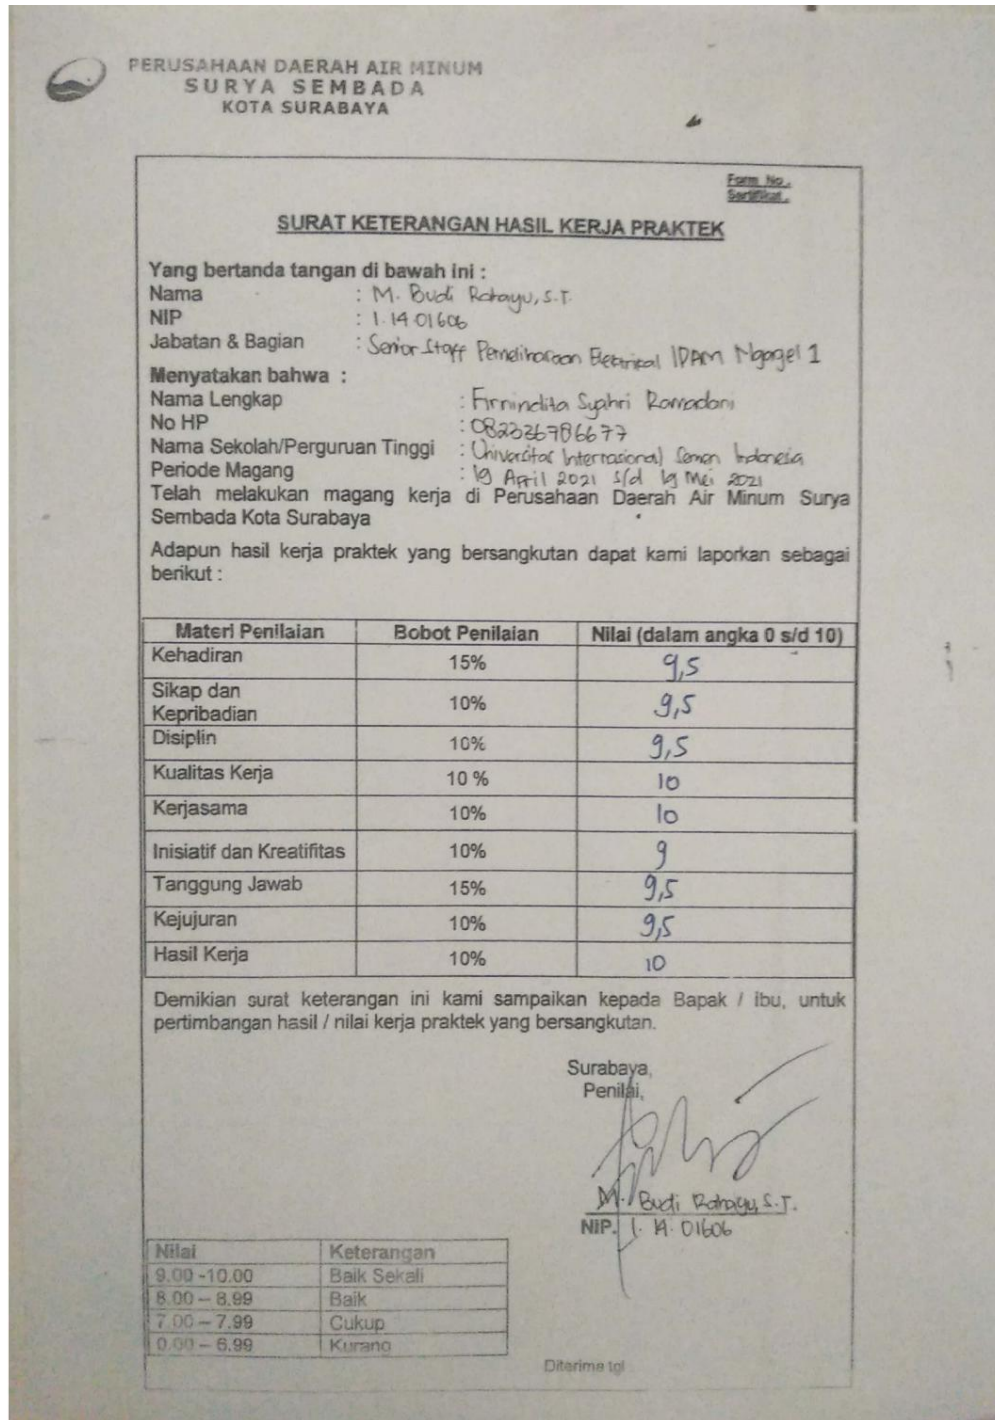 PERUSAHAAN DAERAH AIR MINUM
SURYA SEMBADA
KOTA SURABAYA
Form No.
Sertifikat.
SURAT KETERANGAN HASIL KERJA PRAKTEK
Yang bertanda tangan di bawah ini :
Nama : M. Budi Rahayu, S.T.
NIP : 1.14.01606
Jabatan & Bagian : Senior Staff Pemeliharaan Elektrikal IPAM Ngagel 1
Menyatakan bahwa :
Nama Lengkap : Firnindita Syahri Ramadani
No HP : 082326786677
Nama Sekolah/Perguruan Tinggi : Universitas Internasional Semen Indonesia
Periode Magang : 19 April 2021 s/d 19 Mei 2021
Telah melakukan magang kerja di Perusahaan Daerah Air Minum Surya
Sembada Kota Surabaya
Adapun hasil kerja praktek yang bersangkutan dapat kami laporkan sebagai
berikut :
Materi Penilaian Bobot Penilaian Nilai (dalam angka 0 s/d 10)
Kehadiran 15% 9,5
Sikap dan
Kepribadian 10% 9,5
Disiplin 10% 9,5
Kualitas Kerja 10 % 10
Kerjasama 10% 10
Inisiatif dan Kreatifitas 10% 9
Tanggung Jawab 15% 9,5
Kejujuran 10% 9,5
Hasil Kerja 10% 10
Demikian surat keterangan ini kami sampaikan kepada Bapak / ibu, untuk
pertimbangan hasil / nilai kerja praktek yang bersangkutan.
Surabaya,
Penilai,
M. Budi Rahayu, S.T.
NIP. 1.14.01606
Nilai Keterangan
9.00 -10.00 Baik Sekali
8.00 – 8.99 Baik
7.00 – 7.99 Cukup
0.00 – 6.99 Kurang
Diterima tgl